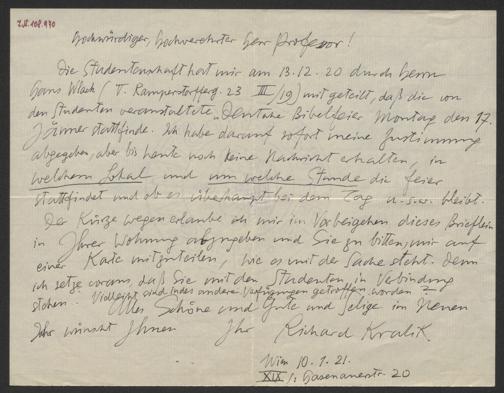 I.N. 108.970
Hochwürdiger, hochverehrter Herr Professor!
Die Studentenschaft hat mir am 13.12.20 durch Herrn
Hans (V. Ramperstorfferg. 23 III/19) mitgeteilt, daß die von
den Studenten veranstaltete „Deutsche Bibelfeier Montag den 17.
Jänner stattfinde. Ich habe darauf sofort meine Zustimmung
abgegeben, aber bis heute noch keine Nachricht erhalten, in
welchem Lokal und um welche Stunde die Feier
stattfindet und ob es überhaupt bei dem Tag u.s.w. bleibt.
Der Kürze wegen erlaube ich mir im Vorbeigehen dieses Brieflein
in Ihrer Wohnung abzugeben und Sie zu bitten, mir auf
einer Karte mitzuteilen, wie es mit der Sache steht. Denn
ich setze voraus, daß Sie mit den Studenten in Verbindung
stehen. Vielleicht sind indes andere Verfügungen getroffen worden
Alles Schöne und Gute und Selige im Neuen
Jahr wünscht Ihnen Ihr Richard Kralik.
Wien 10.1.21.
XIX/1 Hasenauerstr. 20